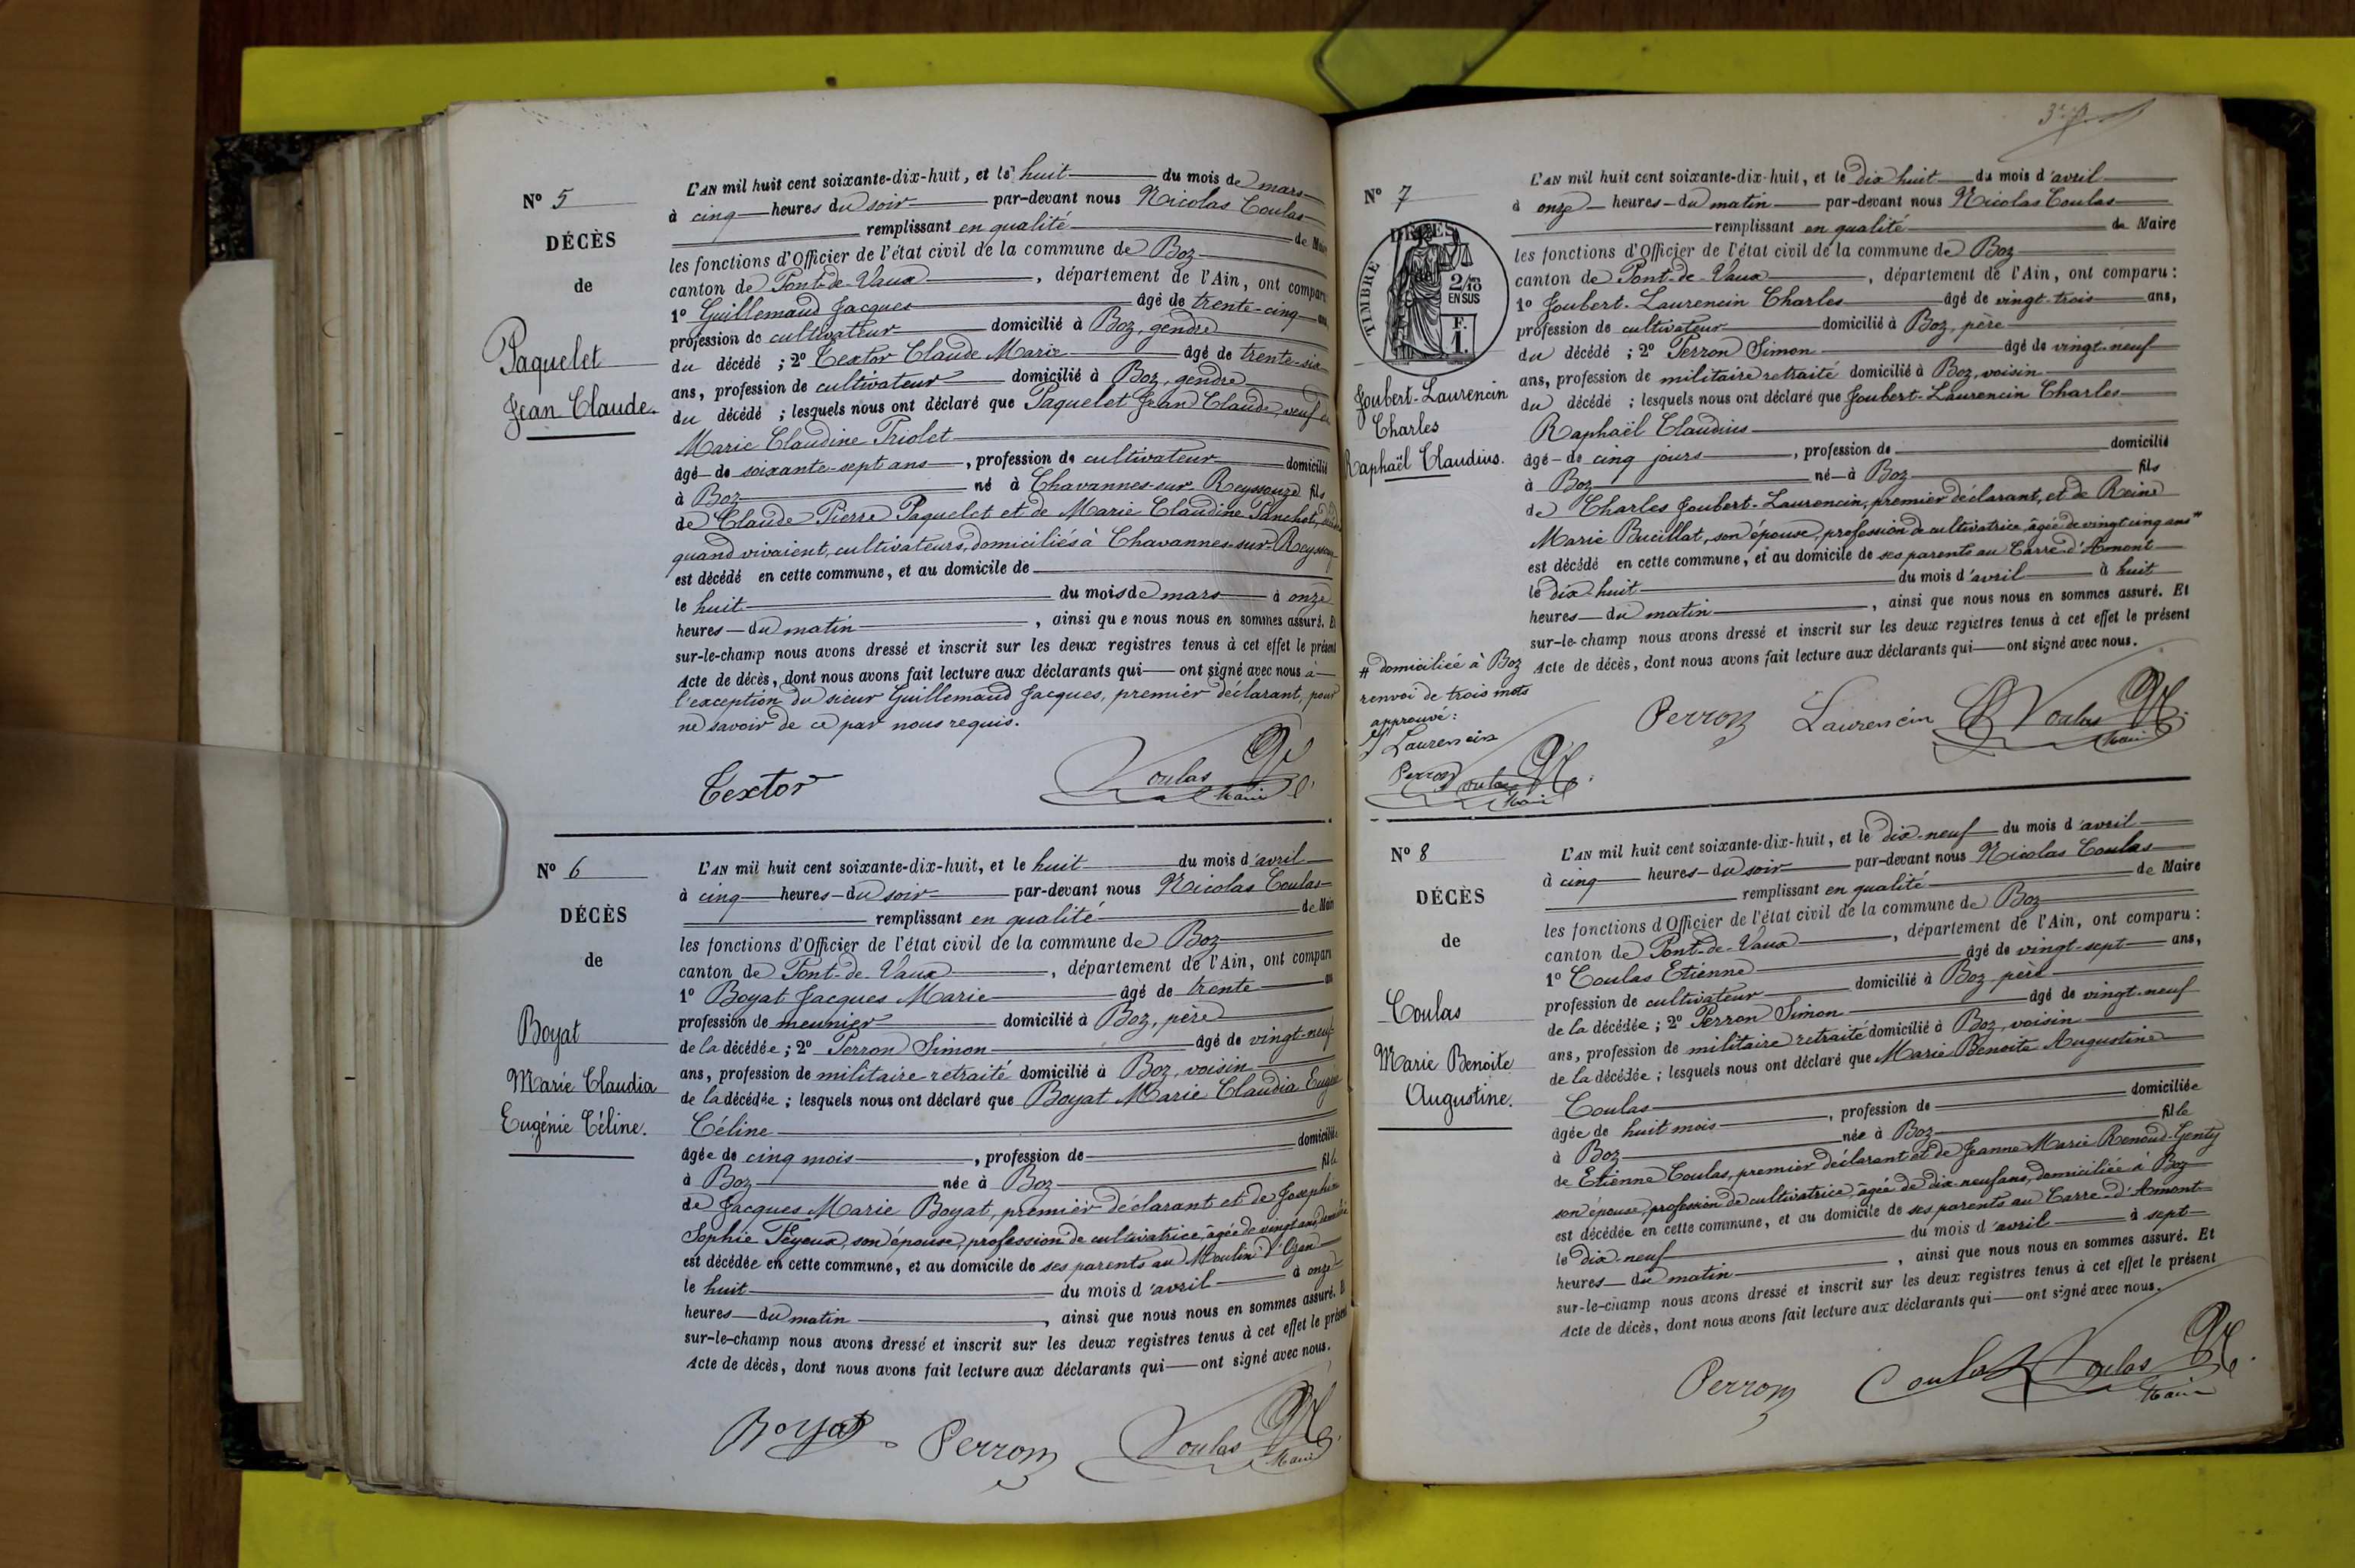 Nº 5
DÉCÈS
de
Paquelet
Jean Claude.
L'AN mil huit cent soixante-dix-huit, et le huit du mois de mars
à cinq heures du soir par-devant nous Nicolas Coulas
remplissant en qualité de Maire
les fonctions d'Officier de l'état civil de la commune de Boz
canton de Pont-de-Vaux, département de l'Ain, ont comparu
1º Guillemaud Jacques âgé de trente-cinq ans
profession de cultivateur domicilié à Boz, gendre
du décédé ; 2º Textor Claude Marie âgé de trente-six
ans, profession de cultivateur domicilié à Boz, gendre
du décédé ; lesquels nous ont déclaré que Paquelet Jean Claude, veuf de
Marie Claudine Priolet
âgé de soixante-sept ans, profession de cultivateur domicilié
à Boz né à Chavannes-sur-Reyssouze fils
de Claude Pierre Paquelet et de Marie Claudine
quand vivaient, cultivateurs, domiciliés à Chavannes-sur-Reyssouze
est décédé en cette commune, et au domicile de
le huit du mois de mars à onze
heures du matin, ainsi que nous nous en sommes assuré. Et
sur-le-champ nous avons dressé et inscrit sur les deux registres tenus à cet effet le présent
Acte de décès, dont nous avons fait lecture aux déclarants qui ont signé avec nous à
l'exception du sieur Guillemaud Jacques, premier déclarant, pour
ne savoir de ce par nous requis.
Textor Coulas Maire
Nº 6
DÉCÈS
de
Boyat
Marie Claudia
Eugénie Céline.
L'AN mil huit cent soixante-dix-huit, et le huit du mois d'avril
à cinq heures du soir par-devant nous Nicolas Coulas
remplissant en qualité de Maire
les fonctions d'Officier de l'état civil de la commune de Boz
canton de Pont-de-Vaux, département de l'Ain, ont comparu
1º Boyat Jacques Marie âgé de trente ans
profession de meunier domicilié à Boz, père
de la décédée ; 2º Perron Simon âgé de vingt-neuf
ans, profession de militaire retraité domicilié à Boz, voisin
de la décédée ; lesquels nous ont déclaré que Boyat Marie Claudia Eugénie
Céline
âgée de cinq mois, profession de domiciliée
à Boz née à Boz fille
de Jacques Marie Boyat, premier déclarant et de Joséphine
Sophie Feyeux, son épouse, profession de cultivatrice, âgée de vingt ans, domiciliée
est décédée en cette commune, et au domicile de ses parents au Moulin d'Ozan
le huit du mois d'avril à onze
heures du matin, ainsi que nous nous en sommes assuré. Et
sur-le-champ nous avons dressé et inscrit sur les deux registres tenus à cet effet le présent
Acte de décès, dont nous avons fait lecture aux déclarants qui ont signé avec nous.
Boyat Perron Coulas Maire
Nº 7
DÉCÈS
TIMBRE
2/10
EN SUS
F.
1.
Joubert-Laurencin
Charles
Raphaël Claudius.
L'AN mil huit cent soixante-dix-huit, et le dix huit du mois d'avril
à onze heures du matin par-devant nous Nicolas Coulas
remplissant en qualité de Maire
les fonctions d'Officier de l'état civil de la commune de Boz
canton de Pont-de-Vaux, département de l'Ain, ont comparu :
1º Joubert-Laurencin Charles âgé de vingt-trois ans,
profession de cultivateur domicilié à Boz, père
du décédé ; 2º Perron Simon âgé de vingt-neuf
ans, profession de militaire retraité domicilié à Boz, voisin
du décédé ; lesquels nous ont déclaré que Joubert-Laurencin Charles
Raphaël Claudius
âgé de cinq jours, profession de domicilié
à Boz né à Boz fils
de Charles Joubert-Laurencin, premier déclarant, et de Reine
Marie Bucillat, son épouse, profession de cultivatrice, âgée de vingt cinq ans #
est décédé en cette commune, et au domicile de ses parents au Carre-d'Amont
le dix-huit du mois d'avril à huit
heures du matin, ainsi que nous nous en sommes assuré. Et
sur-le-champ nous avons dressé et inscrit sur les deux registres tenus à cet effet le présent
Acte de décès, dont nous avons fait lecture aux déclarants qui ont signé avec nous.
# domiciliée à Boz
renvoi de trois mots
approuvé :
Laurencin
Perron Coulas
Maire
Perron Laurencin Coulas
Maire
Nº 8
DÉCÈS
de
Coulas
Marie Benoite
Augustine.
L'AN mil huit cent soixante-dix-huit, et le dix-neuf du mois d'avril
à cinq heures du soir par-devant nous Nicolas Coulas
remplissant en qualité de Maire
les fonctions d'Officier de l'état civil de la commune de Boz
canton de Pont-de-Vaux, département de l'Ain, ont comparu :
1º Coulas Etienne âgé de vingt-sept ans,
profession de cultivateur domicilié à Boz, père
de la décédée ; 2º Perron Simon âgé de vingt-neuf
ans, profession de militaire retraité domicilié à Boz, voisin
de la décédée ; lesquels nous ont déclaré que Marie Benoite Augustine
Coulas
âgée de huit mois, profession de domiciliée
à Boz née à Boz fille
de Etienne Coulas, premier déclarant et de Jeanne Marie Renoud-Genty
son épouse, profession de cultivatrice, âgée de dix-neuf ans, domiciliée à Boz
est décédée en cette commune, et au domicile de ses parents au Carre-d'Amont
le dix-neuf du mois d'avril à sept
heures du matin, ainsi que nous nous en sommes assuré. Et
sur-le-champ nous avons dressé et inscrit sur les deux registres tenus à cet effet le présent
Acte de décès, dont nous avons fait lecture aux déclarants qui ont signé avec nous.
Perron Coulas Coulas
Maire